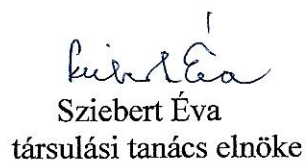 Sziebert Éva
Sziebert Éva
társulási tanács elnöke